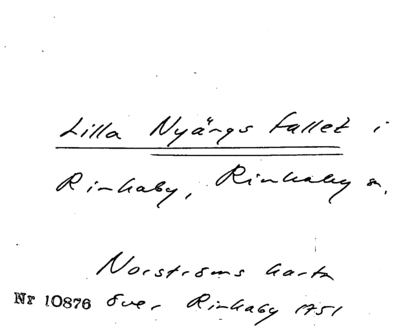 Lilla Nyängs fallet i
Rinkaby, Rinkaby sn.
Norströms karta
Nr 10876 över Rinkaby 1751